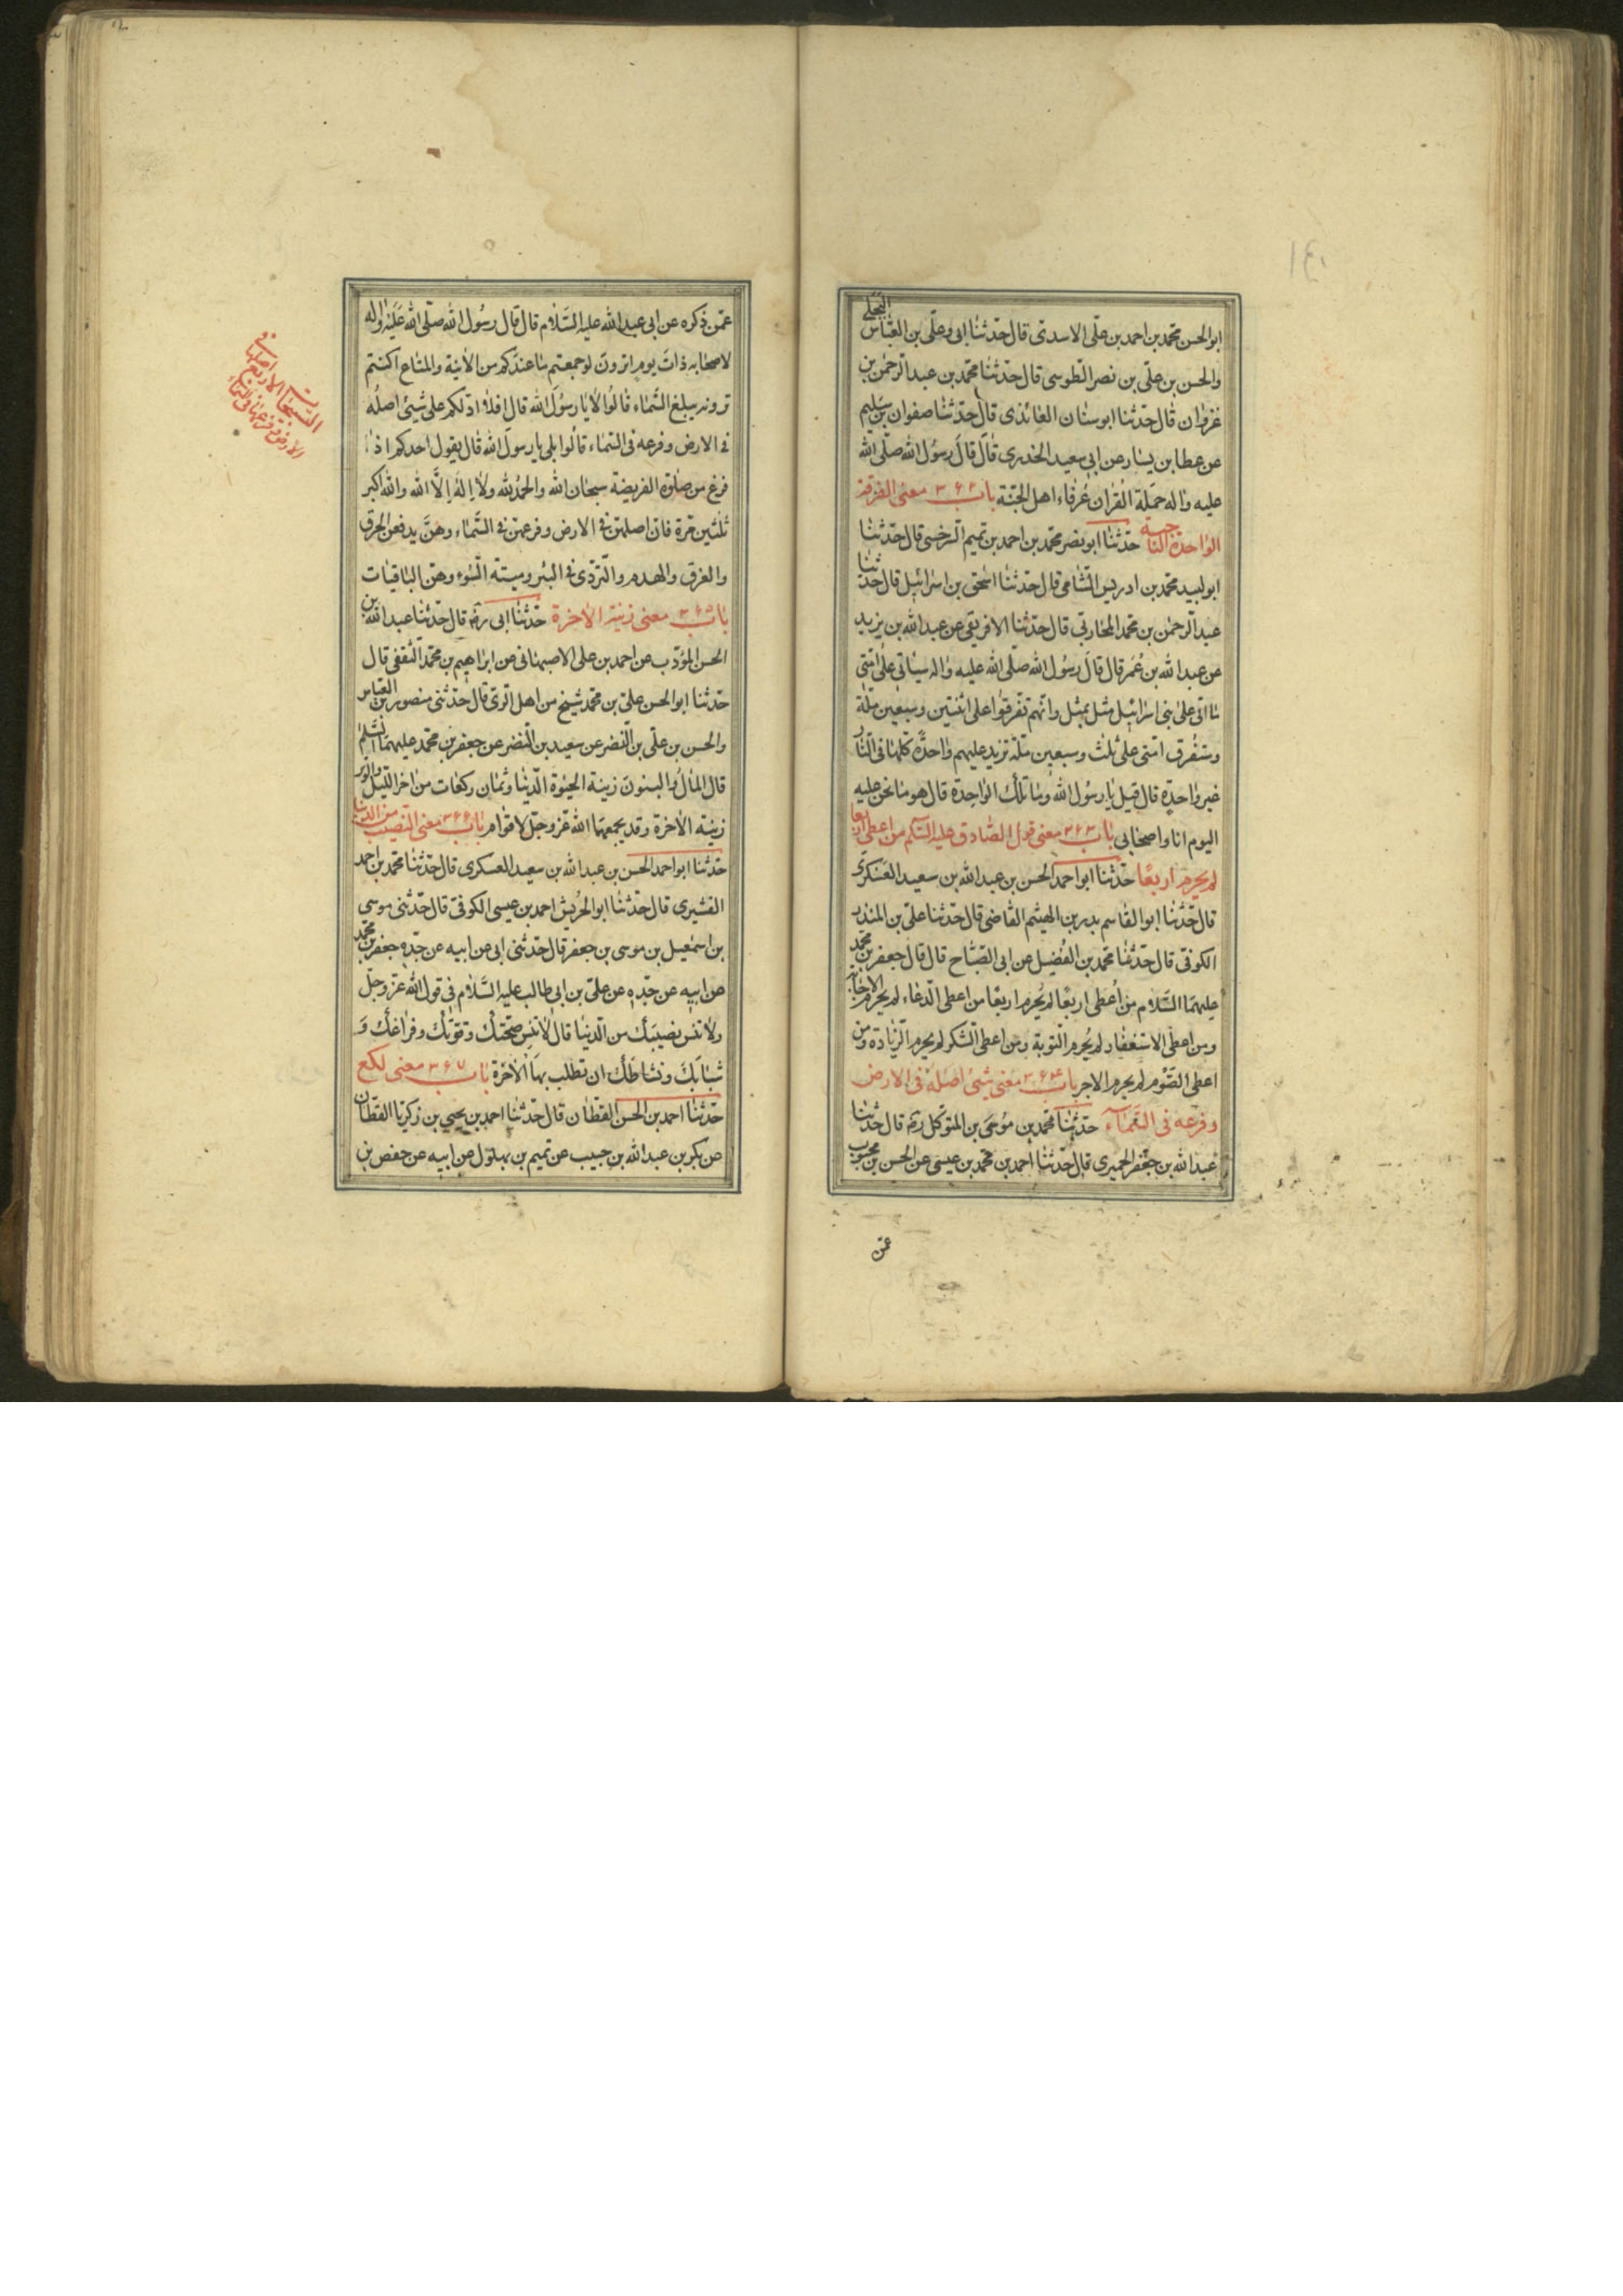 ابوالحسن محمد بن احمد بن علی الاسدی قال حدثنا ابی وعلی بن العباس البجلی
والحسن بن علی بن نصر الطوسی قال حدثنا محمد بن عبد الرحمن بن
غزوان قال حدثنا ابوسنان العائذی قال حدثنا صفوان بن سلیم
عن عطا بن یسار عن ابی سعید الخدری قال قال رسول الله صلی الله
علیه واله حملة القران عرفاء اهل الجنة باب ۳۶۲ معنی الفرقة
الواحدة الناجیة حدثنا ابو نصر محمد بن احمد بن تمیم السرخسی قال حدثنا
ابولبید محمد بن ادریس الشامی قال حدثنا اسحق بن اسرائیل قال حدثنا
عبد الرحمن بن محمد المحاربی قال حدثنا الافریقی عن عبد الله بن یزید
عن عبد الله بن عمر قال قال رسول الله صلی الله علیه واله سیأتی علی امتی
ما اتی علی بنی اسرائیل مثل بمثل وانهم تفرقوا علی اثنتین وسبعین ملة
وستفرق امتی علی ثلث وسبعین ملة تزید علیهم واحدة کلها فی النار
غیر واحدة قال قیل یا رسول الله وما تلک الواحدة قال هو ما نحن علیه
الیوم انا واصحابی باب ۳۶۳ معنی قول الصادق علیه السلم من اعطی اربعا
لم یحرم اربعا حدثنا ابو احمد الحسن بن عبد الله بن سعید العسکری
قال حدثنا ابو القاسم بدر بن الهیثم القاضی قال حدثنا علی بن المنذر
الکوفی قال حدثنا محمد بن الفضیل عن ابی الصباح قال قال جعفر بن محمد
علیهما السلام من اعطی اربعا لم یحرم اربعا من اعطی الدعاء لم یحرم الاجابة
ومن اعطی الاستغفار لم یحرم التوبة ومن اعطی الشکر لم یحرم الزیادة ومن
اعطی الصوم لم یحرم الاجر باب ۳۶۴ معنی شیئ اصله فی الارض
وفرعه فی السماء حدثنا محمد بن موسی بن المتوکل ره قال حدثنا
عبد الله بن جعفر الحمیری قال حدثنا احمد بن محمد بن عیسی عن الحسن بن محبوب
عمن
عمن ذکره عن ابی عبد الله علیه السلام قال قال رسول الله صلی الله علیه واله
لاصحابه ذات یوم اترون لو جمعتم ما عندکم من الانیة والمتاع اکنتم
ترونه یبلغ السماء قالوا لا یا رسول الله قال افلا ادلکم علی شیئ اصله
فی الارض وفرعه فی السماء قالوا بلی یا رسول الله قال یقول احدکم اذا
فرغ من صلوة الفریضة سبحان الله والحمد لله ولا اله الا الله والله اکبر
ثلثین مرة فان اصلهن فی الارض وفرعهن فی السماء وهن یدفعن الحرق
والغرق والهدم والتردی فی البئر ومیتة السوء وهن الباقیات
باب ۳۶۵ معنی زینة الاخرة حدثنا ابی ره قال حدثنا عبد الله بن
الحسن المؤدب عن احمد بن علی الاصبهانی عن ابراهیم بن محمد الثقفی قال
حدثنا ابو الحسن علی بن محمد شیخ من اهل الری قال حدثنی منصور بن العباس
والحسن بن علی بن النضر عن سعید بن النضر عن جعفر بن محمد علیهما السلم
قال المال والبنون زینة الحیوة الدنیا وثمان رکعات من اخر اللیل والوتر
زینة الاخرة وقد یجمعهما الله عز وجل لاقوام باب ۳۶۶ معنی النصیب من الدنیا
حدثنا ابو احمد الحسن بن عبد الله بن سعید العسکری قال حدثنا محمد بن احمد
القشیری قال حدثنا ابو الحریش احمد بن عیسی الکوفی قال حدثنی موسی
بن اسمعیل بن موسی بن جعفر قال حدثنی ابی عن ابیه عن جده جعفر بن محمد
عن ابیه عن جده عن علی بن ابی طالب علیه السلام فی قول الله عز وجل
ولا تنس نصیبک من الدنیا قال لا تنس صحتک وقوتک وفراغک و
شبابک ونشاطک ان تطلب بها الاخرة باب ۳۶۷ معنی لکع
حدثنا احمد بن الحسن القطان قال حدثنا احمد بن یحیی بن زکریا القطان
عن بکر بن عبد الله بن حبیب عن تمیم بن بهلول عن ابیه عن حفص بن
التسبیحات الاربع اصلها فی
الارض وفرعها فی السماء